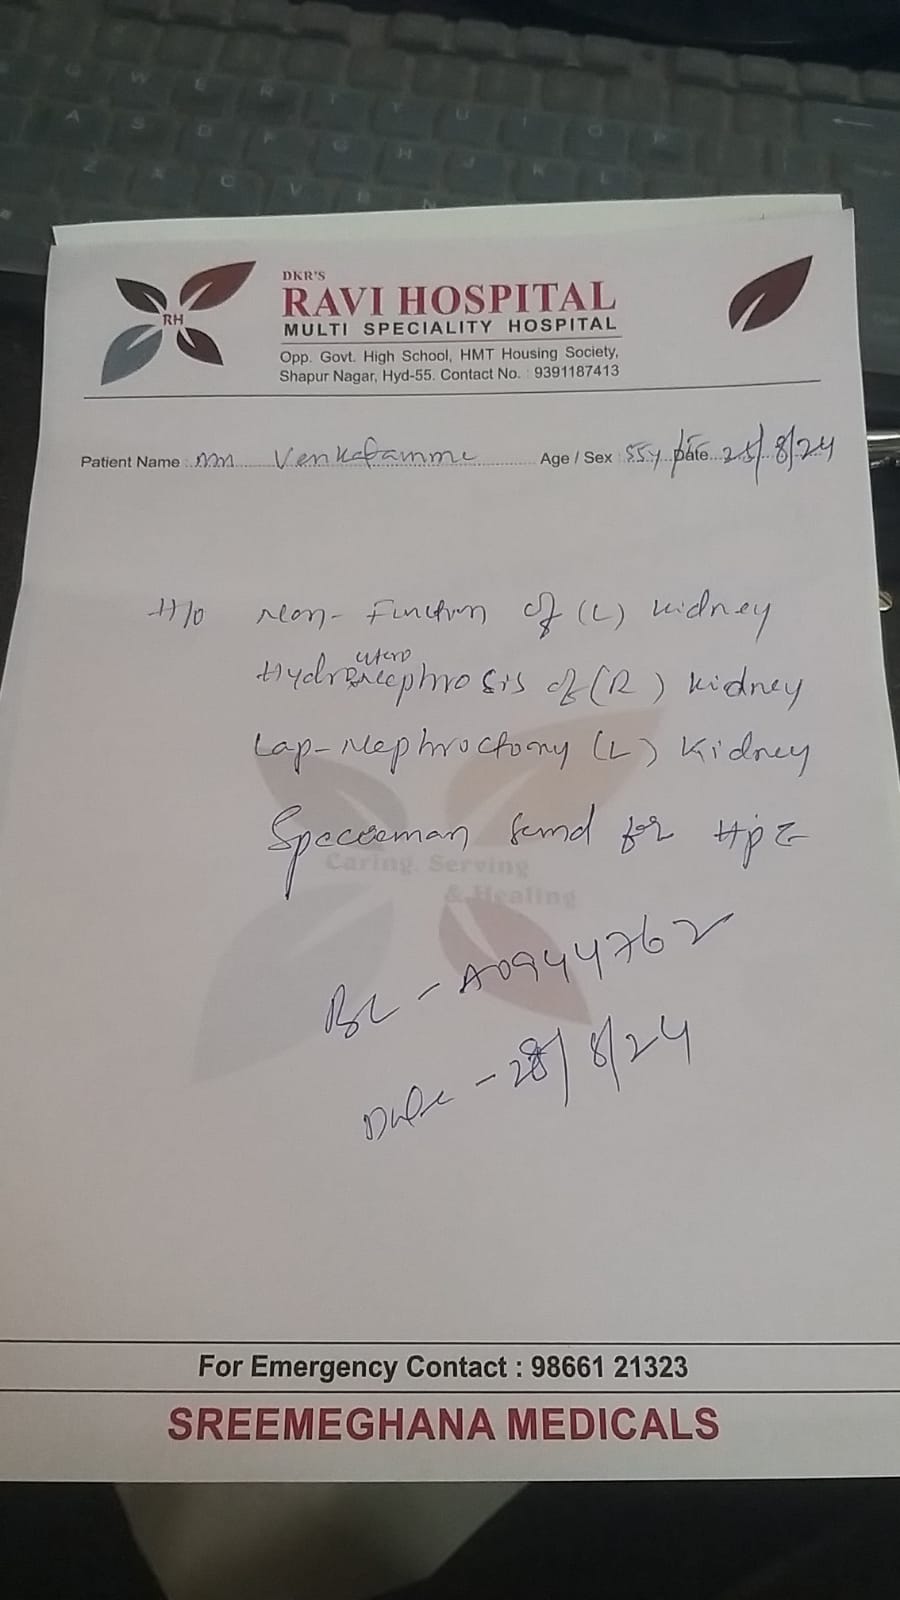 DKR'S
RAVI HOSPITAL
MULTI SPECIALITY HOSPITAL
Opp. Govt. High School, HMT Housing Society,
Shapur Nagar, Hyd-55. Contact No. : 9391187413
RH
Patient Name : Venkatamme Age / Sex : 55y Date 25/8/24
H/o Non-Function of (L) kidney
Hydroureteronephrosis of (R) kidney
Lap-Nephroctomy (L) Kidney
Speceeman Send for HPE
Caring, Serving
& Healing
BC - A0944762
Date - 28/8/24
For Emergency Contact : 98661 21323
SREEMEGHANA MEDICALS